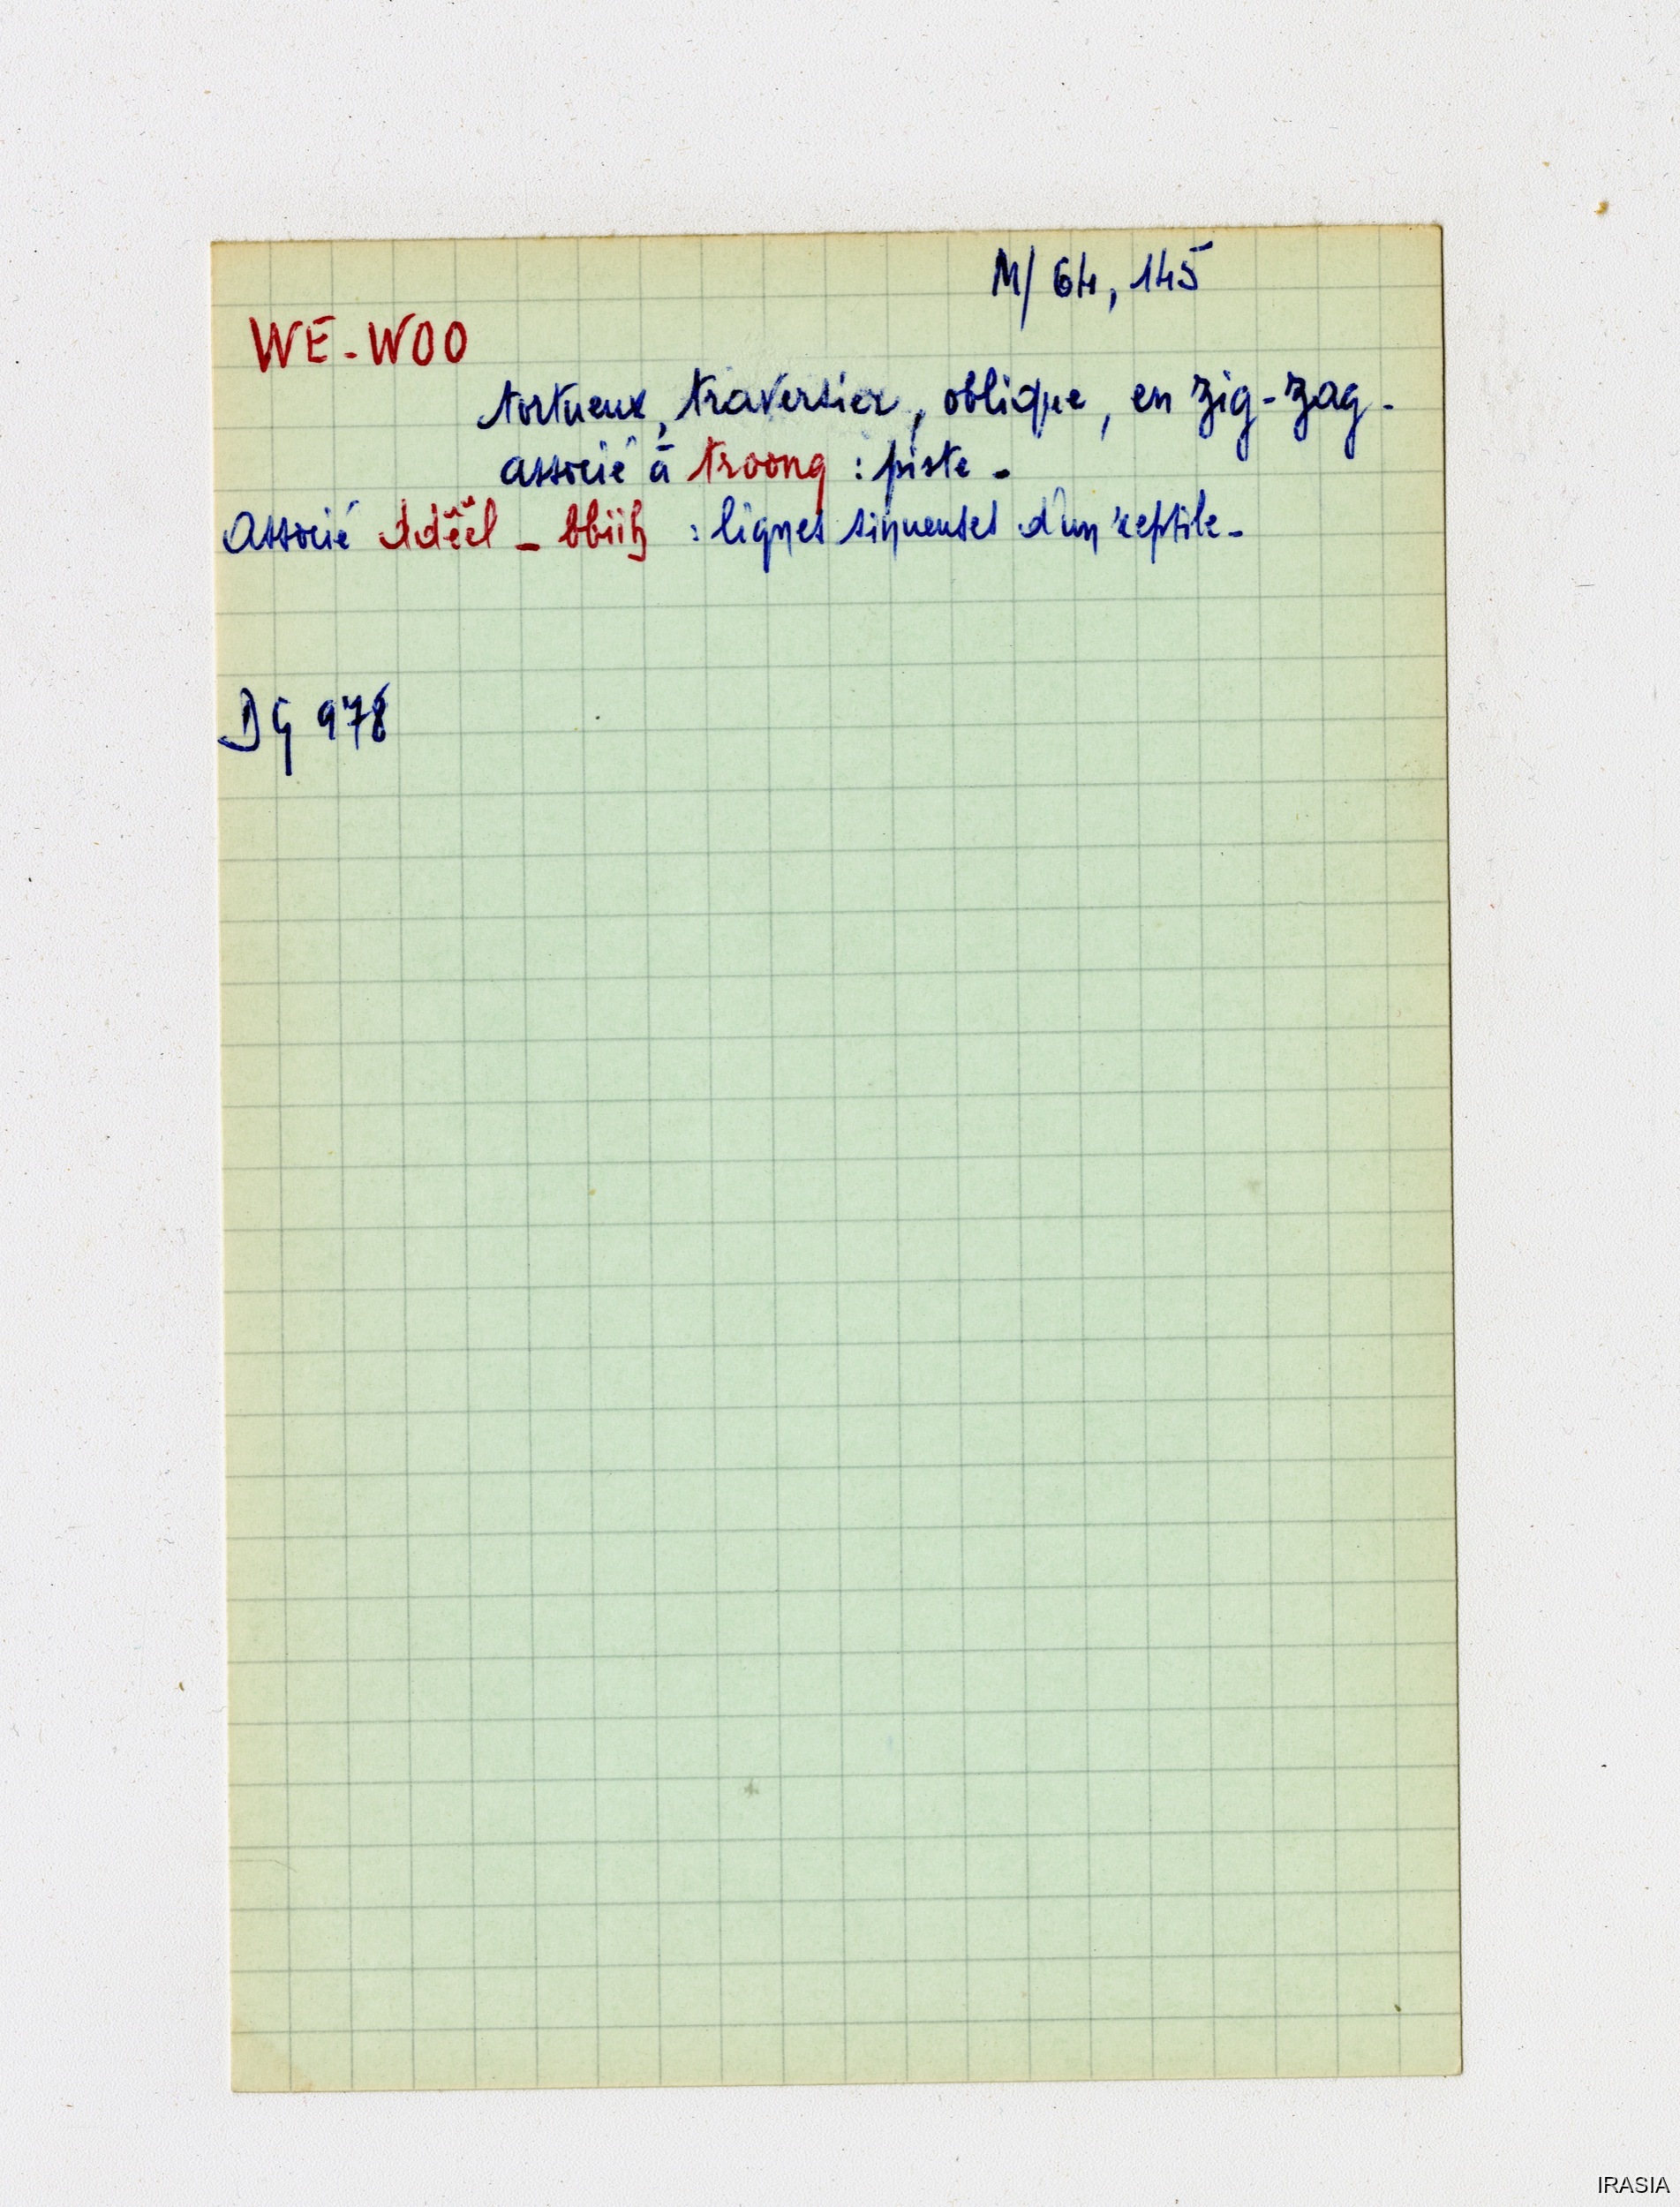 M/64, 145
WE-WOO
tortueux, traversier, oblique, en zig-zag-
associé à troong : piste-
Associé ddëël - bbiih : lignes sinueuses d'un reptile-
DG 978
IRASIA